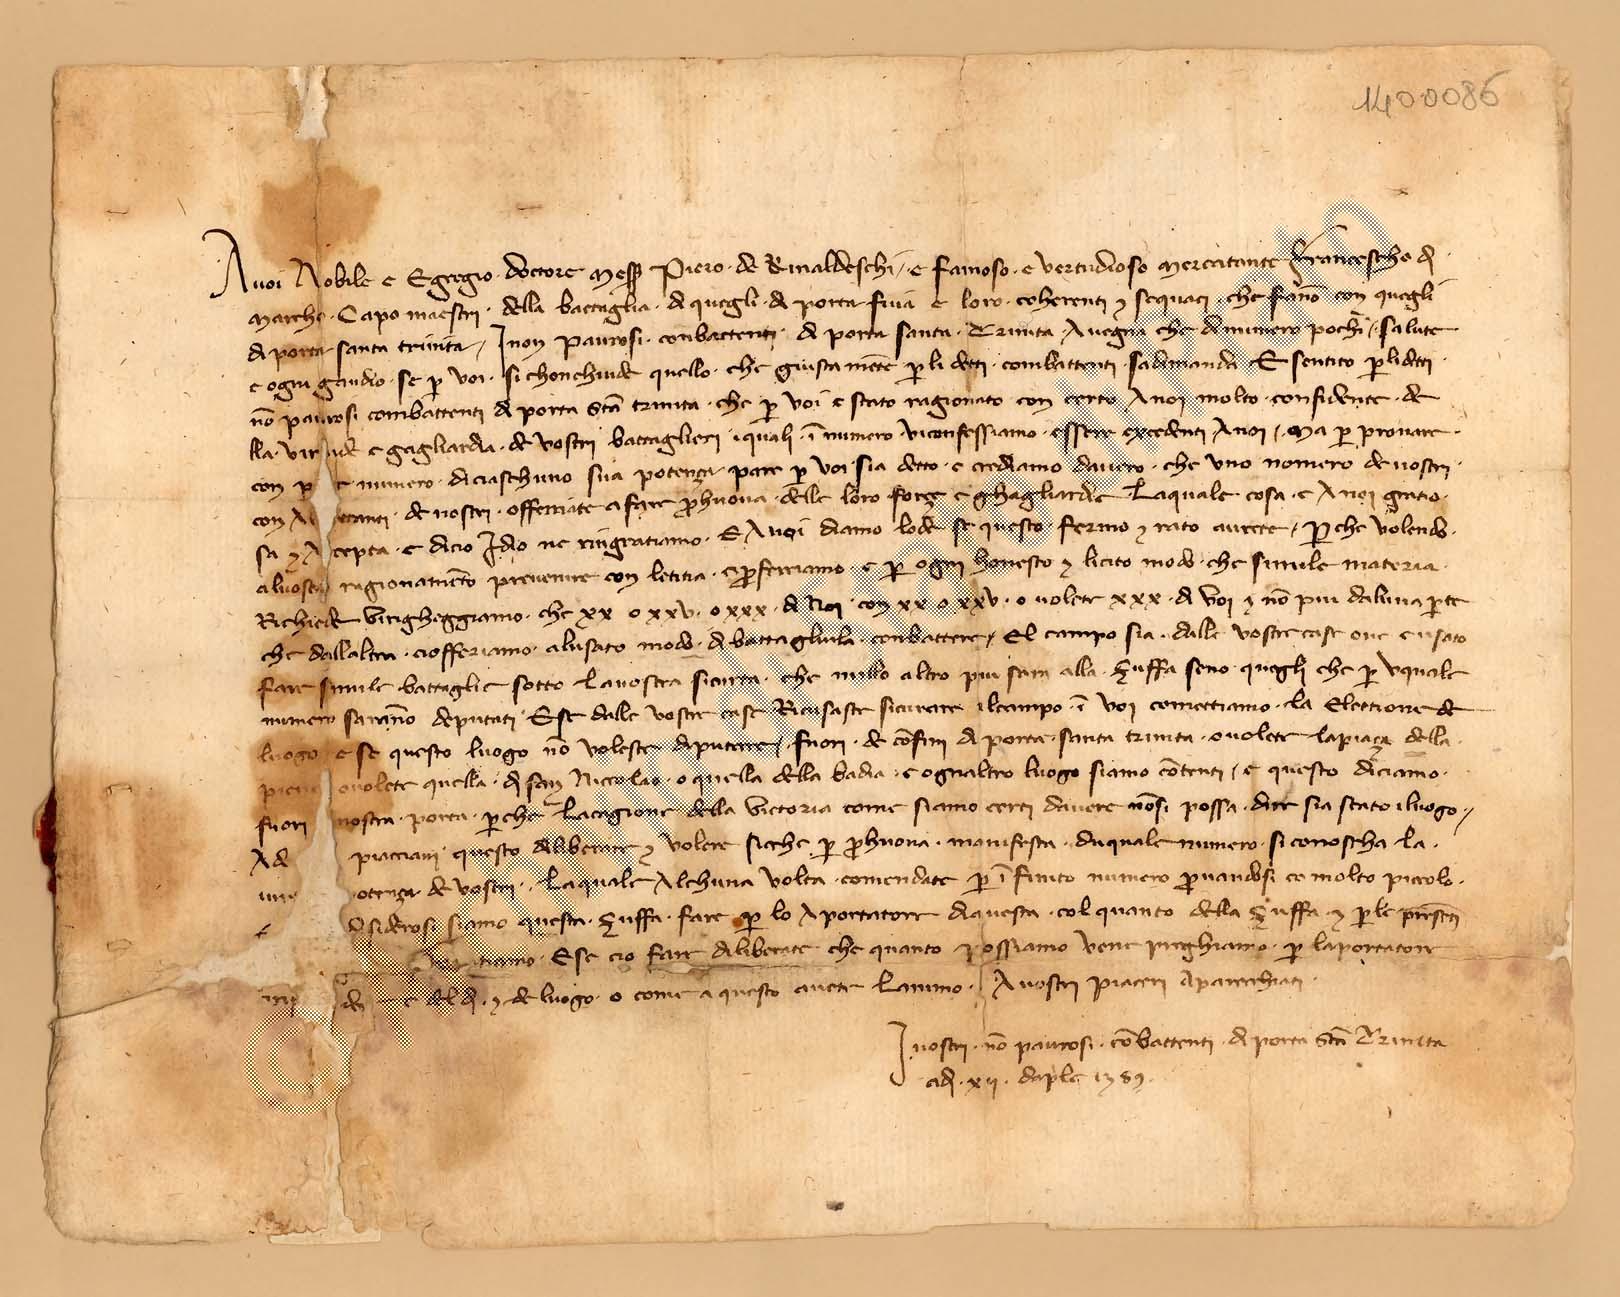 1400086
A voi Nobile e Egregio doctore mess Piero de Rinaldeschi / e famoso e vertudioso mercatante francescho d
marcho Capo maestri della battaglia di quegli di porta fuia e loro coherenti et sequaci che fano con quegli
di porta santa trinita / I non paurosi conbattenti di porta santa Trinita Avegna che di numero pochi / salute
e ogni gaudio se p voi si chonchiude quello che giusta mete p li detti combattenti sadimanda E sentito p li detti
no paurosi combattenti di porta sta trinita che p voi e stato ragionato con certo A noi molto confidente de
lla e gagliardia de vostri battaglieri i quali i numero vi confessiamo essere excedenti A noi / ma p provare
con numero di ciaschuno sua potenza pare p voi sia detto e crediamo davero che uno nomero de vostri
con de nostri offerriate a fare phuova delle loro forze e ghagliardie La quale cosa e A noi gratio
sa et e dicio Idio ne ringratiamo E A voi diamo lode se questo fermo et rato avrete / P che volendo
al vostro ragionameto pervenire con letitia ci pferriamo e p ogni honesto et licito modo che simile materia
Richiede Virigheggiamo che xx o xxv o xxx di Noi con xx o xxv o volete xxx di Voi et no piu da luna pte
che dallaltra ci offeriamo a lusato modo di battagliuola conbattere / El campo sia dalle vostre case ove e usato
fare simile battaglie sotto la vostra sicurta che nullo altro piu stia alla zuffa seno quegli che p uquale
numero sarano deputati E se dalle vostre case Ricusaste sicurare il campo i voi comettiamo la Electione de
luogo e se questo luogo no voleste diputare / fuori de cofini di porta santa trinita o volete la piaza della
pieve o volete quella di san Niccolao o quella della badia e ogni altro luogo siamo cotenti / e questo diciamo
fuori nostra porta p che La cagione della Victoria come siamo certi davere nosi possa dire sia stato i luogo /
piacciavi questo diliberare et volere siche p phuova manifesta di quale numero si conoscha la
de vostri La quale Alchuna volta comendate p i finito numero pvandosi co molto piccolo
disiderosi siamo questa zuffa fare p lo Aportatore di questa col quanto della zuffa et p le presenti
E se cio fare diliberate che quanto possiamo vene preghiamo p laportatore
del di et de luogo o come a questo avete lanimo A vostri piaceri Aparechiati
I vostri no paurosi cobattenti di porta sta Trinita
adi xii daple